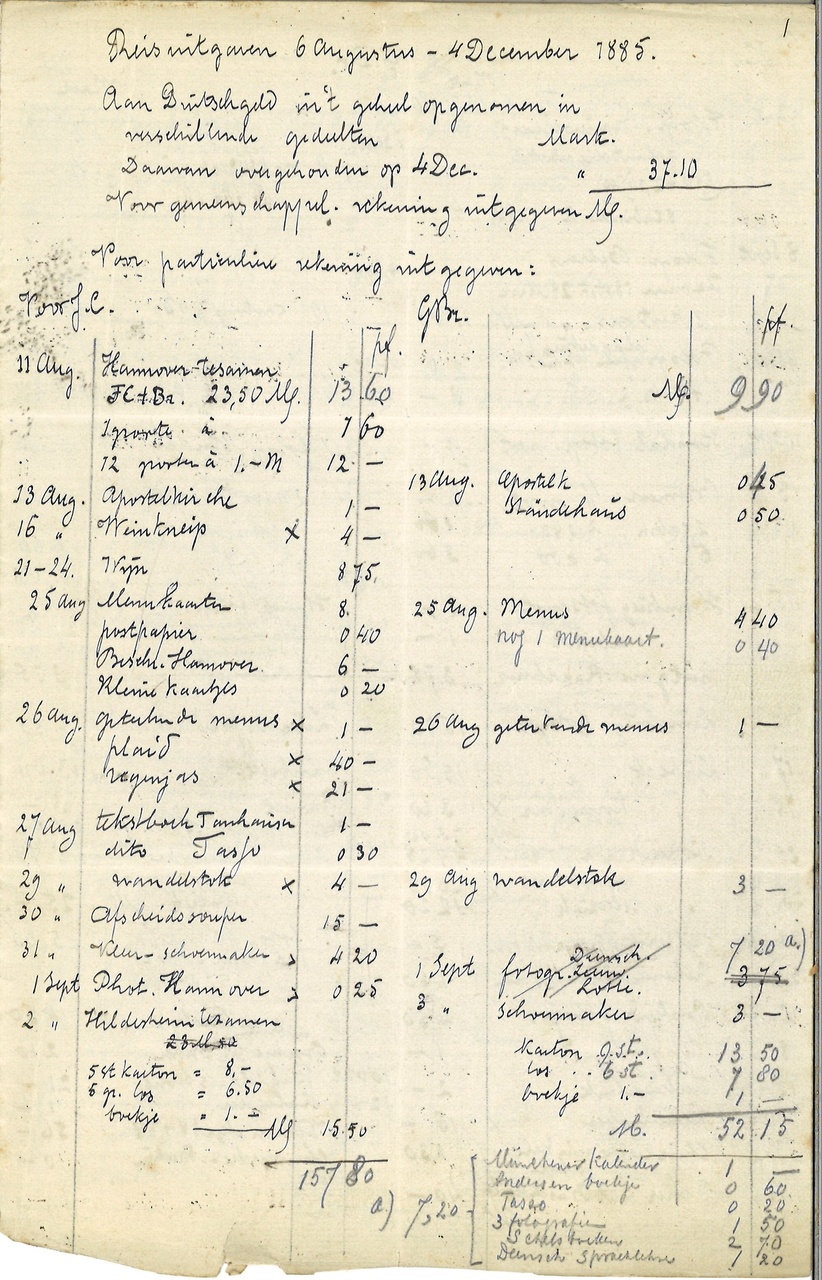 1
Reisuitgaven 6 Augustus – 4 December 1885.
Aan Duitschgeld in't geheel opgenomen in
verschillende gedeelten Mark.
Daarvan overgehouden op 4 Dec. " 37.10
Voor gemeenschappel. rekening uitgegeven M.
Voor particuliere rekening uitgegeven:
Voor J.C.
pf.
11 Aug. Hannover tesamen
FC+Br. 23,50 M. 13 60
1 porte à 1 60
12 porten à 1.–M 12 –
13 Aug. Apostelkirche 1 –
16 " Weinkneip x 4 –
21–24. Wijn 8 75.
25 Aug Menukaarten 8.
postpapier 0 40
Beschr. Hannover 6 –
Kleine kaartjes 0 20
26 Aug. getekende menus x 1 –
plaid x 40 –
regenjas x 21 –
27 Aug tekstboek Tanhauser 1 –
dito Tasso 0 30
29 " wandelstok x 4 –
30 " Afscheidssouper 15 –
31 " schoenmaker 4 20
1 Sept Phot. Hannover 0 25
2 " Hildesheim tesamen
5 st karton = 8.–
5 gr. los = 6.50
boekje = 1.–
M 15 50
157 80
G Br.
pf.
M. 9 90
13 Aug. Apostelk
Ständehaus 0 50
25 Aug. Menus 4 40
nog 1 menukaart. 0 40
26 Aug getekende menus 1 –
29 Aug wandelstok 3 –
7 20 a.)
1 Sept fotogr. Lotte. 3 75
3 " Schoenmaker 3 –
karton 9 st. 13 50
los 6 st. 7 80
boekje 1.– 1 –
M. 52 15
a) 7,20
Münchener Kalender 1 –
Andersen boekje 0 60
Tasso 0 20
3 fotografien 1 50
2 70
Deensch Sprachlehre 1 20